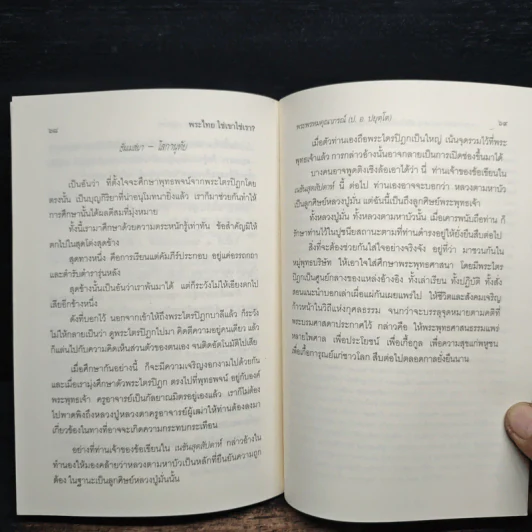 ๖๘
พระไทย ใช่เขาใช่เรา?
ธัมมสยา – โสภานุทัย
เป็นอันว่า ที่ตั้งใจจะศึกษาพุทธพจน์จากพระไตรปิฎกโดย
ตรงนั้น เป็นบุญกิริยาที่น่าอนุโมทนายิ่งแล้ว เราก็มาช่วยกันทำให้
การศึกษานั้นได้ผลดีสมที่มุ่งหมาย
ทั้งนี้เรามาศึกษาด้วยความตระหนักรู้เท่าทัน ข้อสำคัญมิให้
ตกไปในสุดโต่งสุดข้าง
สุดทางหนึ่ง คือการเรียนแต่คัมภีร์ประกอบ อยู่แค่อรรถกถา
และตำรับตำรารุ่นหลัง
สุดข้างนั้นเป็นอันว่าเราพ้นมาได้ แต่ก็ระวังไม่ให้เอียงตกไป
เสียอีกข้างหนึ่ง
ดังที่บอกไว้ นอกจากเข้าให้ถึงพระไตรปิฎกบาลีแล้ว ก็ระวัง
ไม่ให้กลายเป็นว่า ดูพระไตรปิฎกไปมา คิดตีความอยู่คนเดียว แล้ว
ก็แล่นไปกับความคิดเห็นส่วนตัวของตนเอง จนติดอัตโนมัติไปเสีย
เมื่อศึกษากันอย่างนี้ ก็จะมีความเจริญงอกงามไปด้วยกัน
และเมื่อเรามุ่งศึกษาตัวพระไตรปิฎก ตรงไปที่พุทธพจน์ อยู่กับองค์
พระพุทธเจ้า ครูอาจารย์เป็นกัลยาณมิตรอยู่เองแล้ว เราก็ไม่ต้อง
ไปพาดพิงถึงหลวงปู่หลวงตาครูอาจารย์ผู้เฒ่าให้ท่านต้องลงมา
เกี่ยวข้องในทางที่อาจจะเกิดความกระทบกระเทือน
อย่างที่ท่านเจ้าของข้อเขียนใน เนชั่นสุดสัปดาห์ กล่าวอ้างใน
ทำนองให้มองคล้ายว่าหลวงตามหาบัวเป็นหลักที่ยืนยันความถูก
ต้อง ในฐานะเป็นลูกศิษย์หลวงปู่มั่นนั้น
พระพรหมคุณาภรณ์ (ป. อ. ปยุตฺโต)
๖๙
เมื่อตัวท่านเองถือพระไตรปิฎกเป็นใหญ่ เน้นจุดรวมไว้ที่พระ
พุทธเจ้าแล้ว การกล่าวอ้างนั้นอาจกลายเป็นการเปิดช่องขึ้นมาได้
บางคนอาจพูดติงเชิงล้อเอาได้ว่า นี่ ท่านเจ้าของข้อเขียนใน
เนชั่นสุดสัปดาห์ นี้ ต่อไป ท่านเองอาจจะบอกว่า หลวงตามหาบัว
เป็นลูกศิษย์หลวงปู่มั่น แต่ฉันนี้เป็นลูกศิษย์พระพุทธเจ้า
ทั้งหลวงปู่มั่น ทั้งหลวงตามหาบัวนั้น เมื่อเคารพนับถือท่าน ก็
รักษาท่านไว้ในปูชนียสถานะตามที่ท่านดำรงอยู่ให้ยั่งยืนสืบต่อไป
สิ่งที่จะต้องช่วยกันใส่ใจอย่างจริงจัง อยู่ที่ว่า มาชวนกันใน
หมู่พุทธบริษัท ให้เอาใจใส่ศึกษาพระพุทธศาสนา โดยมีพระไตร
ปิฎกเป็นศูนย์กลางของแหล่งอ้างอิง ทั้งเล่าเรียน ทั้งปฏิบัติ ทั้งสั่ง
สอนแนะนำบอกเล่าเผื่อแผ่กันเผยแพร่ไป ให้ชีวิตและสังคมเจริญ
ก้าวหน้าในวิถีแห่งกุศลธรรม จนกว่าจะบรรลุจุดหมายตามคติที่
พระบรมศาสดาประกาศไว้ กล่าวคือ ให้พระพุทธศาสนธรรมแพร่
หลายไพศาล เพื่อประโยชน์ เพื่อเกื้อกูล เพื่อความสุขแก่พหูชน
เพื่อเกื้อการุณย์แก่ชาวโลก สืบต่อไปตลอดกาลยั่งยืนนาน.